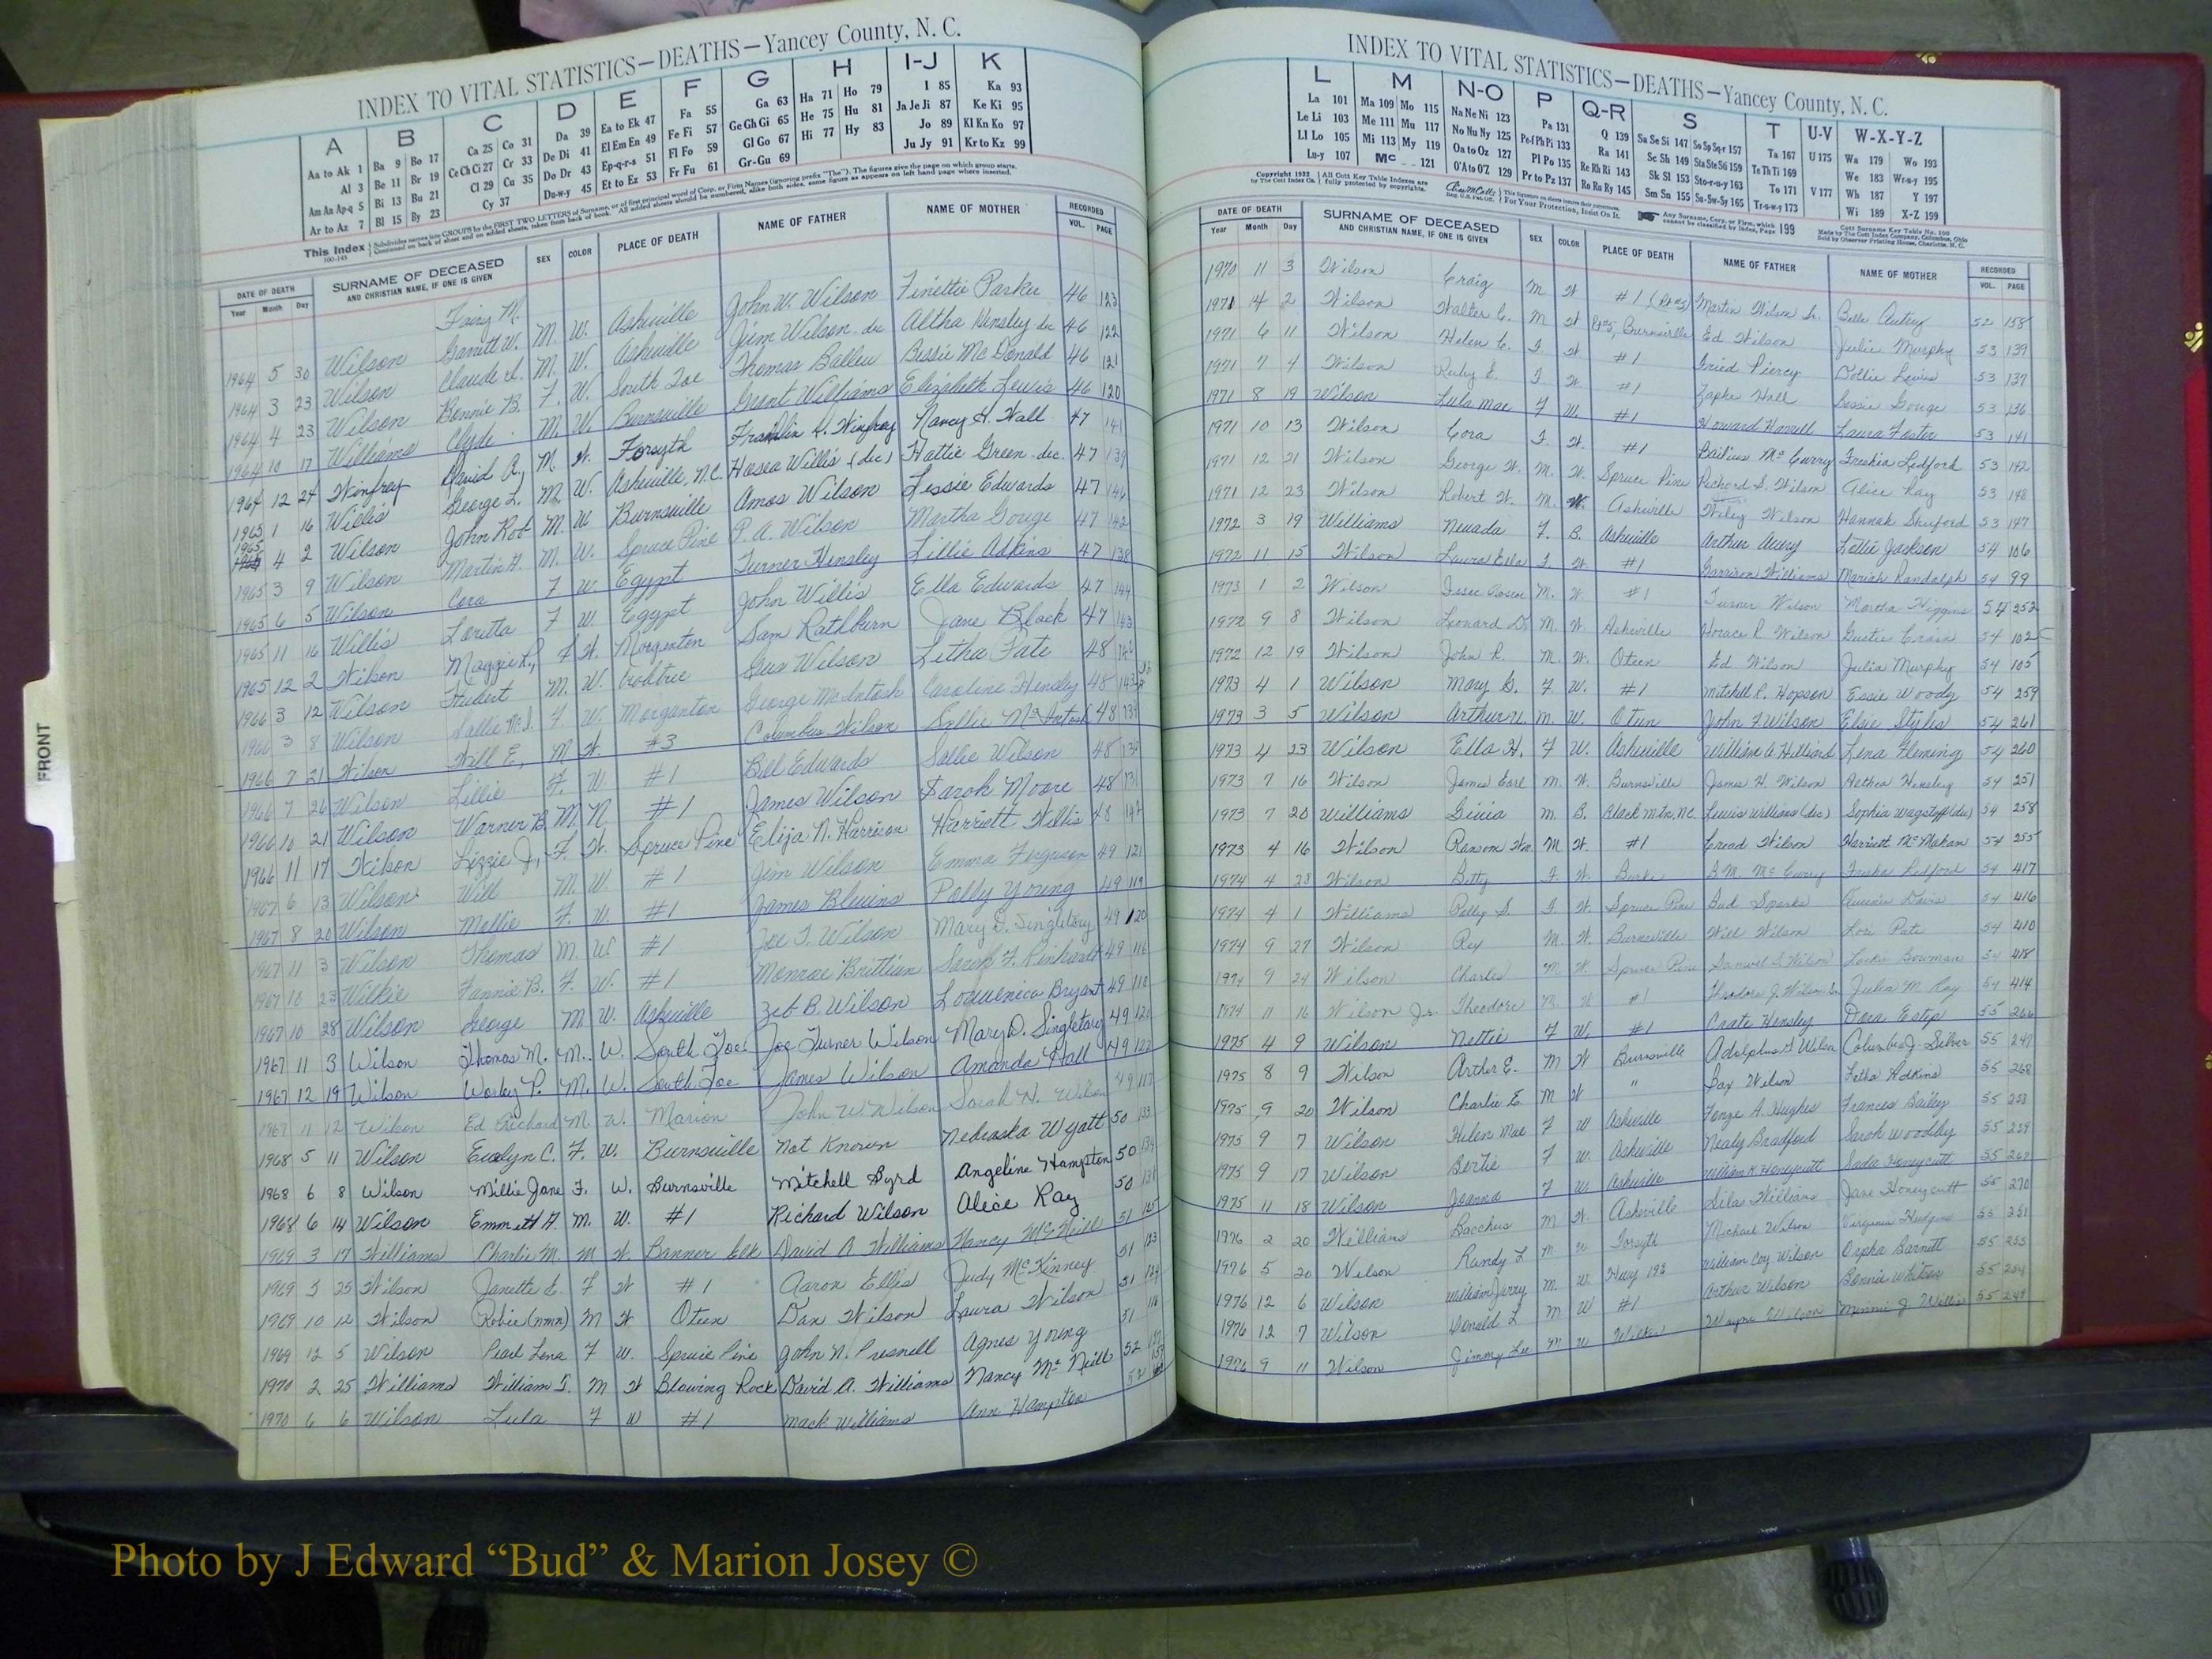 INDEX TO VITAL STATISTICS—DEATHS—Yancey County, N. C.
A B C D E F G H I-J K
Aa to Ak 1 Ba 9 Bo 17 Ca 25 Co 31 Da 39 Ea to Ek 47 Fa 55 Ga 63 Ha 71 Ho 79 I 85 Ka 93
Al 3 Be 11 Br 19 Ce Ch Ci 27 Cr 33 De Di 41 El Em En 49 Fe Fi 57 Ge Gh Gi 65 He 75 Hu 81 Ja Je Ji 87 Ke Ki 95
Am An Ap-q 5 Bi 13 Bu 21 Cl 29 Cu 35 Do Dr 43 Ep-q-r-s 51 Fl Fo 59 Gl Go 67 Hi 77 Hy 83 Jo 89 Kl Kn Ko 97
Ar to Az 7 Bl 15 By 23 Cy 37 Du-w-y 45 Et to Ez 53 Fr Fu 61 Gr-Gu 69 Ju Jy 91 Kr to Kz 99
This Index Subdivides names into GROUPS by the FIRST TWO LETTERS of Surname, or of first principal word of Corp. or Firm Names (ignoring prefix "The"). The figures give the page on which group starts.
Continued on back of sheet and on added sheets, taken from back of book. All added sheets should be numbered, alike both sides, same figure as appears on left hand page where inserted.
DATE OF DEATH SURNAME OF DECEASED SEX COLOR PLACE OF DEATH NAME OF FATHER NAME OF MOTHER RECORDED
Year Month Day AND CHRISTIAN NAME, IF ONE IS GIVEN VOL. PAGE
1964 5 30 Wilson Fairy M. John W. Wilson Finettie Parker 46 123
1964 3 23 Wilson Garrett W. M. W. Asheville Jim Wilson dec Altha Hensley dec 46 122
1964 4 23 Wilson Claude M. W. Asheville Thomas Ballew Bessie McDonald 46 121
1964 10 17 Williams Bonnie B. F. W. South Toe Grant Williams Elizabeth Lewis 46 120
1964 12 24 Winfrey Clyde M. W. Burnsville Franklin Winfrey Nancy Hall 47 141
1965 1 16 Willis David A. M. W. Forsyth Hosea Willis (dec) Hattie Green dec. 47 139
1965 4 2 Wilson George L. M. W. Asheville, N.C. Amos Wilson Lessie Edwards 47 146
1965 3 9 Wilson John Rob M. W. Burnsville P. A. Wilson Martha Gouge 47 142
1965 6 5 Wilson Martin H. M. W. Spruce Pine Turner Hensley Lillie Adkins 47 138
1965 11 16 Willis Cora F W. Egypt John Willis Ella Edwards 47 144
1965 12 2 Wilson Loretta F W. Egypt Sam Rathburn Jane Black 47 143
1966 3 12 Wilson Maggie R. F W. Morganton Gus Wilson Letha Pate 48
1966 3 8 Wilson Hubert M. W. Crabtree George McIntosh Caroline Hensley 48
1966 7 21 Wilson Sallie Mc. F. W. Morganton Columbus Wilson Sallie McIntosh 48
1966 7 26 Wilson Will E. M W. #3 Bill Edwards Sallie Wilson 48
1966 10 21 Wilson Lillie F. W. #1 James Wilson Sarah Moore 48
1966 11 17 Wilson Warner B. M. N #1 Elija N. Harrison Harriett Willis 48
1967 6 13 Wilson Lizzie J. F. W. Spruce Pine Jim Wilson Emma Ferguson 49 121
1967 8 20 Wilson Will M. W. #1 James Blevins Polly Young 49 119
1967 11 3 Wilson Mollie F. W. #1 Joe T. Wilson Mary D. Singletary 49 120
1967 10 23 Wilkie Thomas M. W. #1 Monroe Brittian Sarah F. Rinhardt 49 116
1967 10 28 Wilson Fannie B. F. W. #1 Zeb B. Wilson Louvenica Bryant 49 118
1967 11 3 Wilson George M W. Asheville Joe Turner Wilson Mary D. Singletary 49
1967 12 19 Wilson Thomas M. M. W. South Toe James Wilson Amanda Hall 49 122
1967 11 12 Wilson Worley P. M. W. South Toe John W. Wilson Sarah N. Wilson 49 117
1968 5 11 Wilson Ed Richard M. W. Marion Not Known Nebraska Wyatt 50 133
1968 6 8 Wilson Evelyn C. F. W. Burnsville Mitchell Byrd Angeline Hampton 50
1968 6 14 Wilson Millie Jane F. W. Burnsville Richard Wilson Alice Ray 50
1969 3 17 Williams Emmett H. M. W. #1 David A Williams Nancy McNeill 51 125
1969 3 25 Wilson Charlie M. M W. Banner Elk Aaron Ellis Judy McKinney 51 123
1969 10 12 Wilson Janette E. F W #1 Dan Wilson Laura Wilson 51
1969 12 5 Wilson Robie (nmn) M W Oteen John N. Presnell Agnes Young 51
1970 2 25 Williams Pearl Lena F W. Spruce Pine David A. Williams Nancy McNeill 52
1970 6 6 Wilson William T. M W Blowing Rock Mack Williams Ann Hampton 52
Lula F W #1
INDEX TO VITAL STATISTICS—DEATHS—Yancey County, N. C.
L M N-O P Q-R S T U-V W-X-Y-Z
La 101 Ma 109 Mo 115 Na Ne Ni 123 Pa 131 Q 139 Sa Se Si 147 So Sp Sq-r 157 Ta 167 U 175 Wa 179 Wo 193
Le Li 103 Me 111 Mu 117 No Nu Ny 125 Pe-f Ph Pi 133 Ra 141 Sc Sh 149 Sta Ste Sti 159 Te Th Ti 169 We 183 Wr-u-y 195
Ll Lo 105 Mi 113 My 119 Oa to Oz 127 Pl Po 135 Re Rh Ri 143 Sk Sl 153 Sto-r-u-y 163 To 171 V 177 Wh 187 Y 197
Lu-y 107 Mc 121 O'A to O'Z 129 Pr to Pz 137 Ro Ru Ry 145 Sm Sn 155 Su-Sw-Sy 165 Tr-u-w-y 173 Wi 189 X-Z 199
Copyright 1932 All Cott Key Table Indexes are
by The Cott Index Co. fully protected by copyrights.
For Your Protection, Insist On It.
Any Surname, Corp. or Firm, which cannot be classified by Index, Page 199
Cott Surname Key Table No. 100
Made by The Cott Index Company, Columbus, Ohio
Sold by Observer Printing House, Charlotte, N. C.
DATE OF DEATH SURNAME OF DECEASED SEX COLOR PLACE OF DEATH NAME OF FATHER NAME OF MOTHER RECORDED
Year Month Day AND CHRISTIAN NAME, IF ONE IS GIVEN VOL. PAGE
1970 11 3 Wilson Craig M W #1 Martin Wilson Sr. Belle Autrey 52 158
1971 4 2 Wilson Walter C. M W Burnsville Ed Wilson Julie Murphy 53 139
1971 6 11 Wilson Helen C. F. W #1 Fried Piercy Dollie Lewis 53 137
1971 7 4 Wilson Ruby E. F W. #1 Hall Bessie Gouge 53 136
1971 8 19 Wilson Lula Mae F W. #1 Howard Laura Foster 53 141
1971 10 13 Wilson Cora F. W. #1 McCurry Ledford 53 142
1971 12 21 Wilson George W. M. W. Spruce Pine Richard S. Wilson Alice Ray 53 148
1971 12 23 Wilson Robert W. M. W. Asheville Wiley Wilson Hannah Shuford 53 147
1972 3 19 Williams Nevada F. B. Asheville Arthur Avery Lettie Jackson 54 106
1972 11 15 Wilson Laura Ella F W #1 Garrison Williams Mariah Randolph 54 99
1973 1 2 Wilson M. W #1 Turner Wilson Martha Higgins 54 252
1972 9 8 Wilson Leonard D. M. W. Asheville Horace R. Wilson Gustie 54 102
1972 12 19 Wilson John R. M. W. Oteen Ed Wilson Julia Murphy 54 105
1973 4 1 Wilson Mary G. F W. #1 Mitchell R. Hopson Essie Woody 54 259
1973 3 5 Wilson Arthur M. W. Oteen John F. Wilson Elsie Styles 54 261
1973 4 23 Wilson Ella H. F W. Asheville Lena Fleming 54 260
1973 7 16 Wilson James Earl M W. Burnsville James H. Wilson Hensley 54 251
1973 7 20 Williams M. B. Black Mtn, N.C. Lewis Williams (dec) Sophia Wagstaff (dec) 54 258
1973 4 16 Wilson Ransom M W #1 Wilson Harriett McMahan 54 255
1974 4 28 Wilson Betty F. W. Burke McCurry Ledford 54 417
1974 4 1 Williams Polly S. F. W. Spruce Pine Bud Sparks Queenie Davis 54 416
1974 9 27 Wilson Rex M. W. Burnsville Will Wilson Lori Pate 54 410
1974 9 24 Wilson Charles M W. Spruce Pine Samuel Wilson Bowman 54 418
1974 11 16 Wilson Jr. Theodore M. W #1 Theodore J. Wilson Sr. Julia M. Ray 54 414
1975 4 9 Wilson Nettie F W. #1 Crate Hensley Dora Estep 55 266
1975 8 9 Wilson Arthur E. M W Burnsville Adolphus Wilson Columbia J. Silver 55 247
1975 9 20 Wilson Charlie E. M W " Wilson Letha Adkins 55 268
1975 9 7 Wilson Helen Mae F W Asheville A. Hughes Frances Bailey 55 253
1975 9 17 Wilson Bertie F W. Asheville Nealy Bradford Sarah Woodby 55 259
1975 11 18 Wilson Joanna F W Asheville William K. Honeycutt Sada Honeycutt 55 267
1976 2 20 Williams Bacchus M W. Asheville Silas Williams Jane Honeycutt 55 270
1976 5 20 Wilson Randy L M. W Forsyth Michael Wilson Virginia Hudgins 55 251
1976 12 6 Wilson William Jerry M. W. Hwy 19E William Coy Wilson Orpha Barnett 55 255
1976 12 7 Wilson Donald L M W #1 Arthur Wilson Bonnie Whitson 55 254
1976 9 11 Wilson Jimmy Lee M W Wilkes Wayne Wilson Minnie J Willis 55 249
FRONT
Photo by J Edward “Bud” & Marion Josey ©